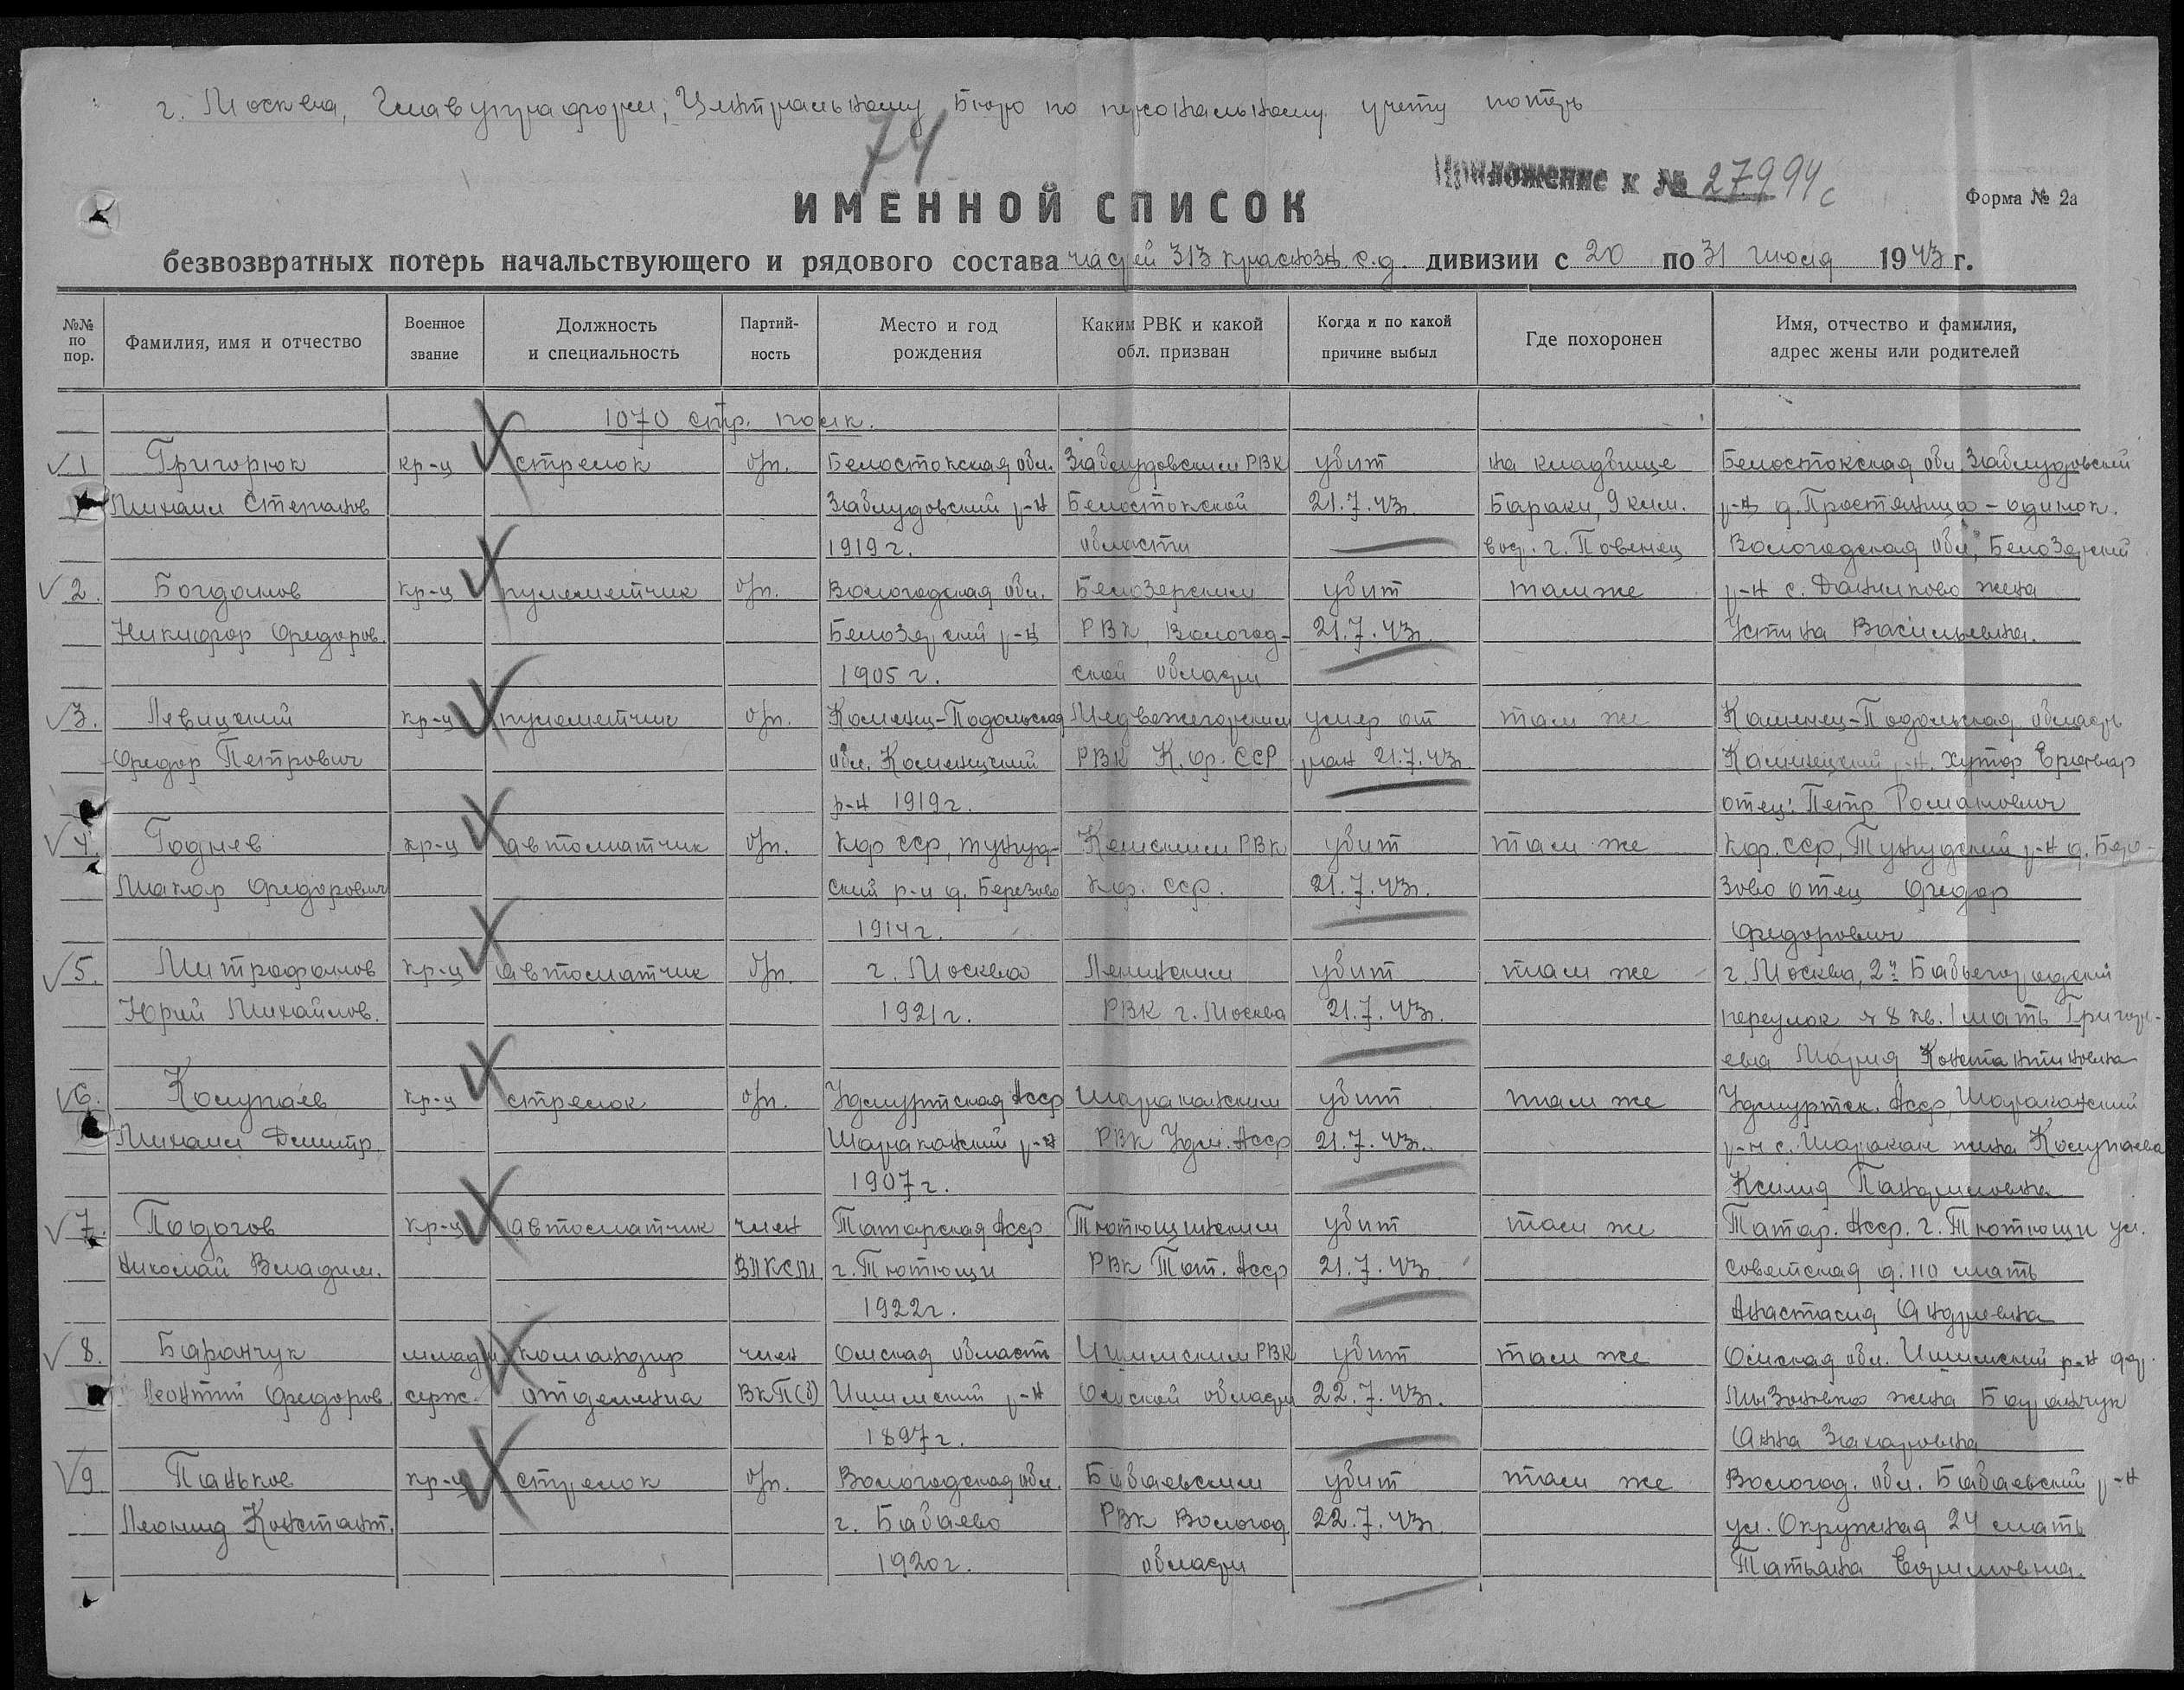 г. Москва, Главупраформ, Центральному Бюро по персональному учету потерь
74
Приложение к № 27994с
Форма № 2а
ИМЕННОЙ СПИСОК
безвозвратных потерь начальствующего и рядового состава частей 313 краснозн. с.д. дивизии с 20 по 31 июля 1943 г.
№№ по пор. Фамилия, имя и отчество Военное звание Должность и специальность Партий-ность Место и год рождения Каким РВК и какой обл. призван Когда и по какой причине выбыл Где похоронен Имя, отчество и фамилия, адрес жены или родителей
1070 стр. полк.
1 Григорюк кр-ц стрелок б/п. Белостокская обл. Заблудовским РВК убит на кладбище Белостокская обл Заблудовский
Михаил Степанов Заблудовский р-н Белостокской 21.7.43г. Бараки, 9 клм. р-н д. Простяница - одинок.
1919 г. области вод. г. Повенец Вологодская обл, Белозерский
2. Богданов кр-ц пулеметчик б/п. Вологодская обл. Белозерским убит там же р-н с. Данилково жена
Никифор Федоров. Белозерский р-н РВК, Вологод- 21.7.43г. Устина Васильевна.
1905 г. ской области
3. Левицкий кр-ц пулеметчик б/п. Каменец-Подольская Медвежегорским умер от там же Каменец-Подольская область
Федор Петрович обл. Каменецкий РВК К.ф. ССР ран 21.7.43г. Каменецкий р-н. хутор
р-н 1919г. отец: Петр Романович
4. Годнев кр-ц автоматчик б/п. Кф ССР, тунгуд- Кемским РВК убит там же Кф. ССР, Тунгудский р-н д. Бере-
Макар Федорович ский р-н д. Березово Кф. ССР. 21.7.43г. зово отец Федор
1914г. Федорович
5. Митрофанов кр-ц автоматчик б/п. г. Москва Ленинским убит там же г. Москва, 2й Бабьегородский
Юрий Михайлов. 1921г. РВК г. Москва 21.7.43г. переулок д 8 кв. 1 мать Григорь-
ева Мария Константиновна
6. Колупаев кр-ц стрелок б/п. Удмуртская Асср Шарканским убит там же Удмуртск. Асср, Шарканский
Михаил Дмитр. Шарканский р-н РВК Удм. Асср 21.7.43г. р-н с. Шаркан жена Колупаева
1907г. Ксения
7. Подогов кр-ц автоматчик член Татарская Асср Тютюшинским убит там же Татар. Асср. г. Тютюши ул.
Николай Владим. ВЛКСМ г. Тютюши РВК Тат. Асср 21.7.43г. Советская д. 110 мать
1922г. Анастасия Андреевна
8. Баранчук младш командир член Омская область Ишимским РВК убит там же Омская обл. Ишимский р-н дер.
Леонтий Федоров. серж. отделения ВКП(б) Ишимский р-н Омской области 22.7.43г. жена Баранчук
1897г. Анна Захаровна
9 Паньков кр-ц стрелок б/п. Вологодская обл. Бабаевским убит там же Вологод. обл. Бабаевский р-н
Леонид Констант. г. Бабаево РВК Вологод 22.7.43г. ул. Окружная 24 мать
1920г. области Татьяна Ефимовна.